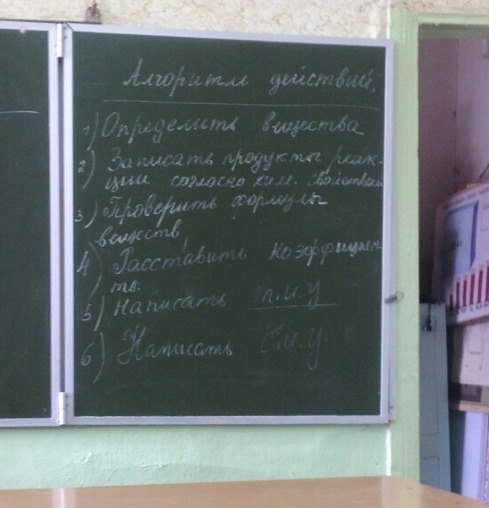 Алгоритм действий:
1) Определить вещества
2) Записать продукты реак-
ции согласно хим. свойствам
3) Проверить формулы
веществ
4) Расставить коэффициен-
ты.
5) Написать п.и.у
6) Написать с.и.у.